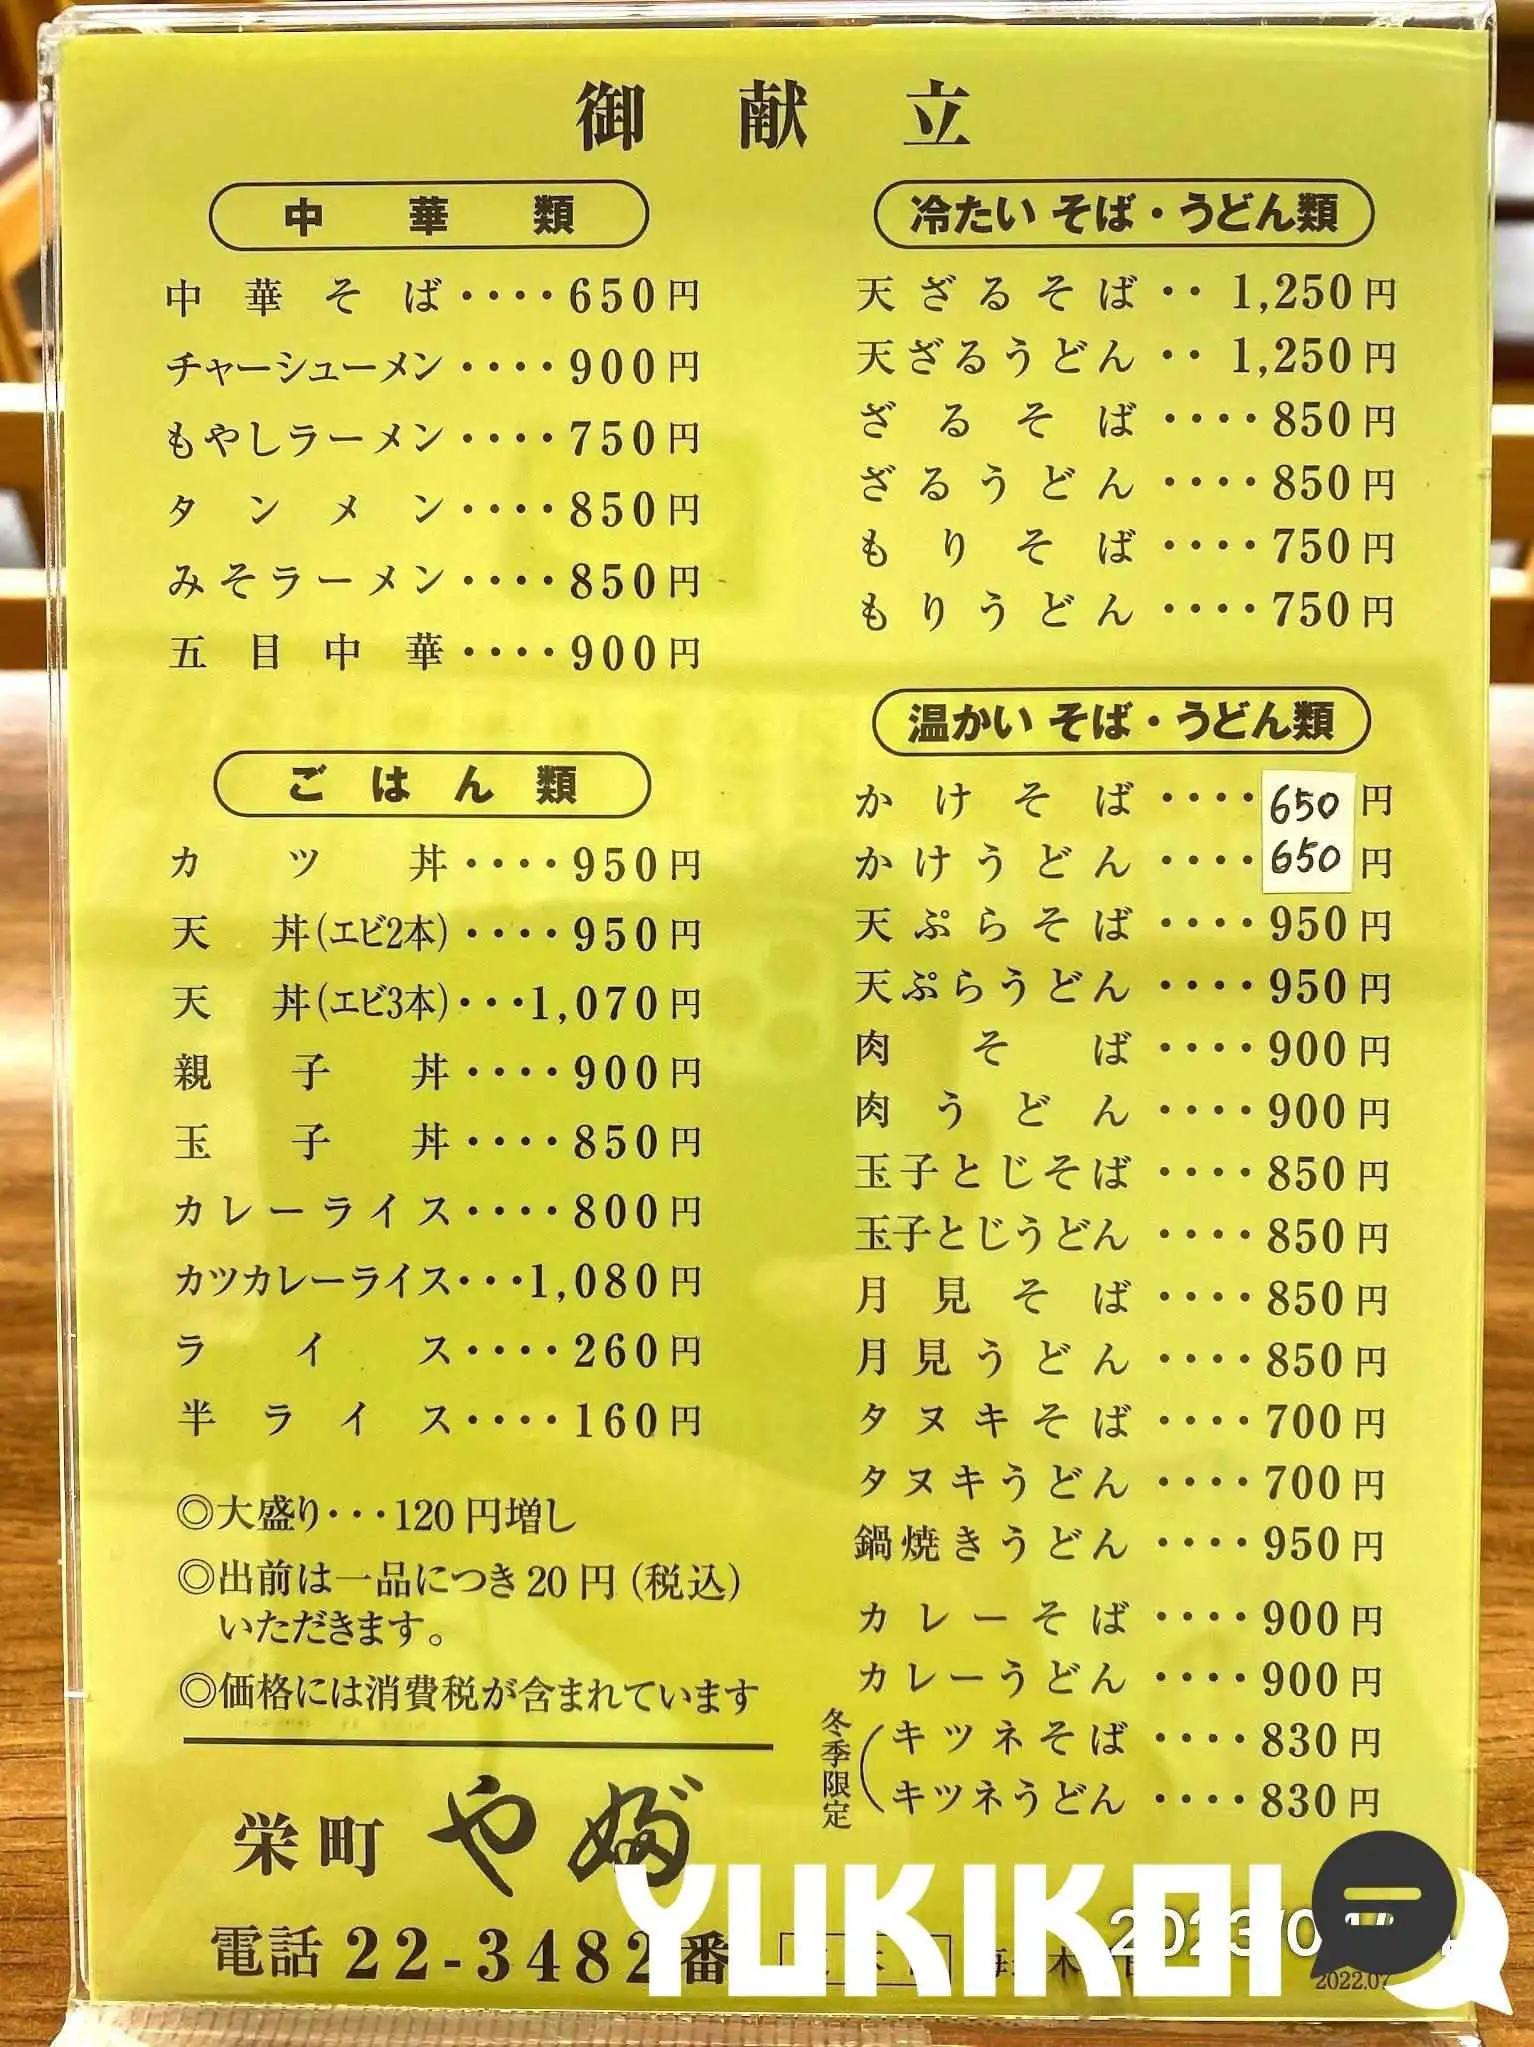 御献立
中華類
中華そば・・・・650円
チャーシューメン・・・・900円
もやしラーメン・・・・750円
タンメン・・・・850円
みそラーメン・・・・850円
五目中華・・・・900円
ごはん類
カツ丼・・・・950円
天丼(エビ2本)・・・・950円
天丼(エビ3本)・・・1,070円
親子丼・・・・900円
玉子丼・・・・850円
カレーライス・・・・800円
カツカレーライス・・・1,080円
ライス・・・・260円
半ライス・・・・160円
◎大盛り・・・120円増し
◎出前は一品につき20円(税込)
いただきます。
◎価格には消費税が含まれています
冷たい そば・うどん類
天ざるそば・・1,250円
天ざるうどん・・1,250円
ざるそば・・・・850円
ざるうどん・・・・850円
もりそば・・・・750円
もりうどん・・・・750円
温かい そば・うどん類
かけそば・・・・650円
かけうどん・・・・650円
天ぷらそば・・・・950円
天ぷらうどん・・・・950円
肉そば・・・・900円
肉うどん・・・・900円
玉子とじそば・・・・850円
玉子とじうどん・・・・850円
月見そば・・・・850円
月見うどん・・・・850円
タヌキそば・・・・700円
タヌキうどん・・・・700円
鍋焼きうどん・・・・950円
カレーそば・・・・900円
カレーうどん・・・・900円
冬季限定
キツネそば・・・・830円
キツネうどん・・・・830円
栄町 や
電話 22-3482番
YUKIKOI
2022.07